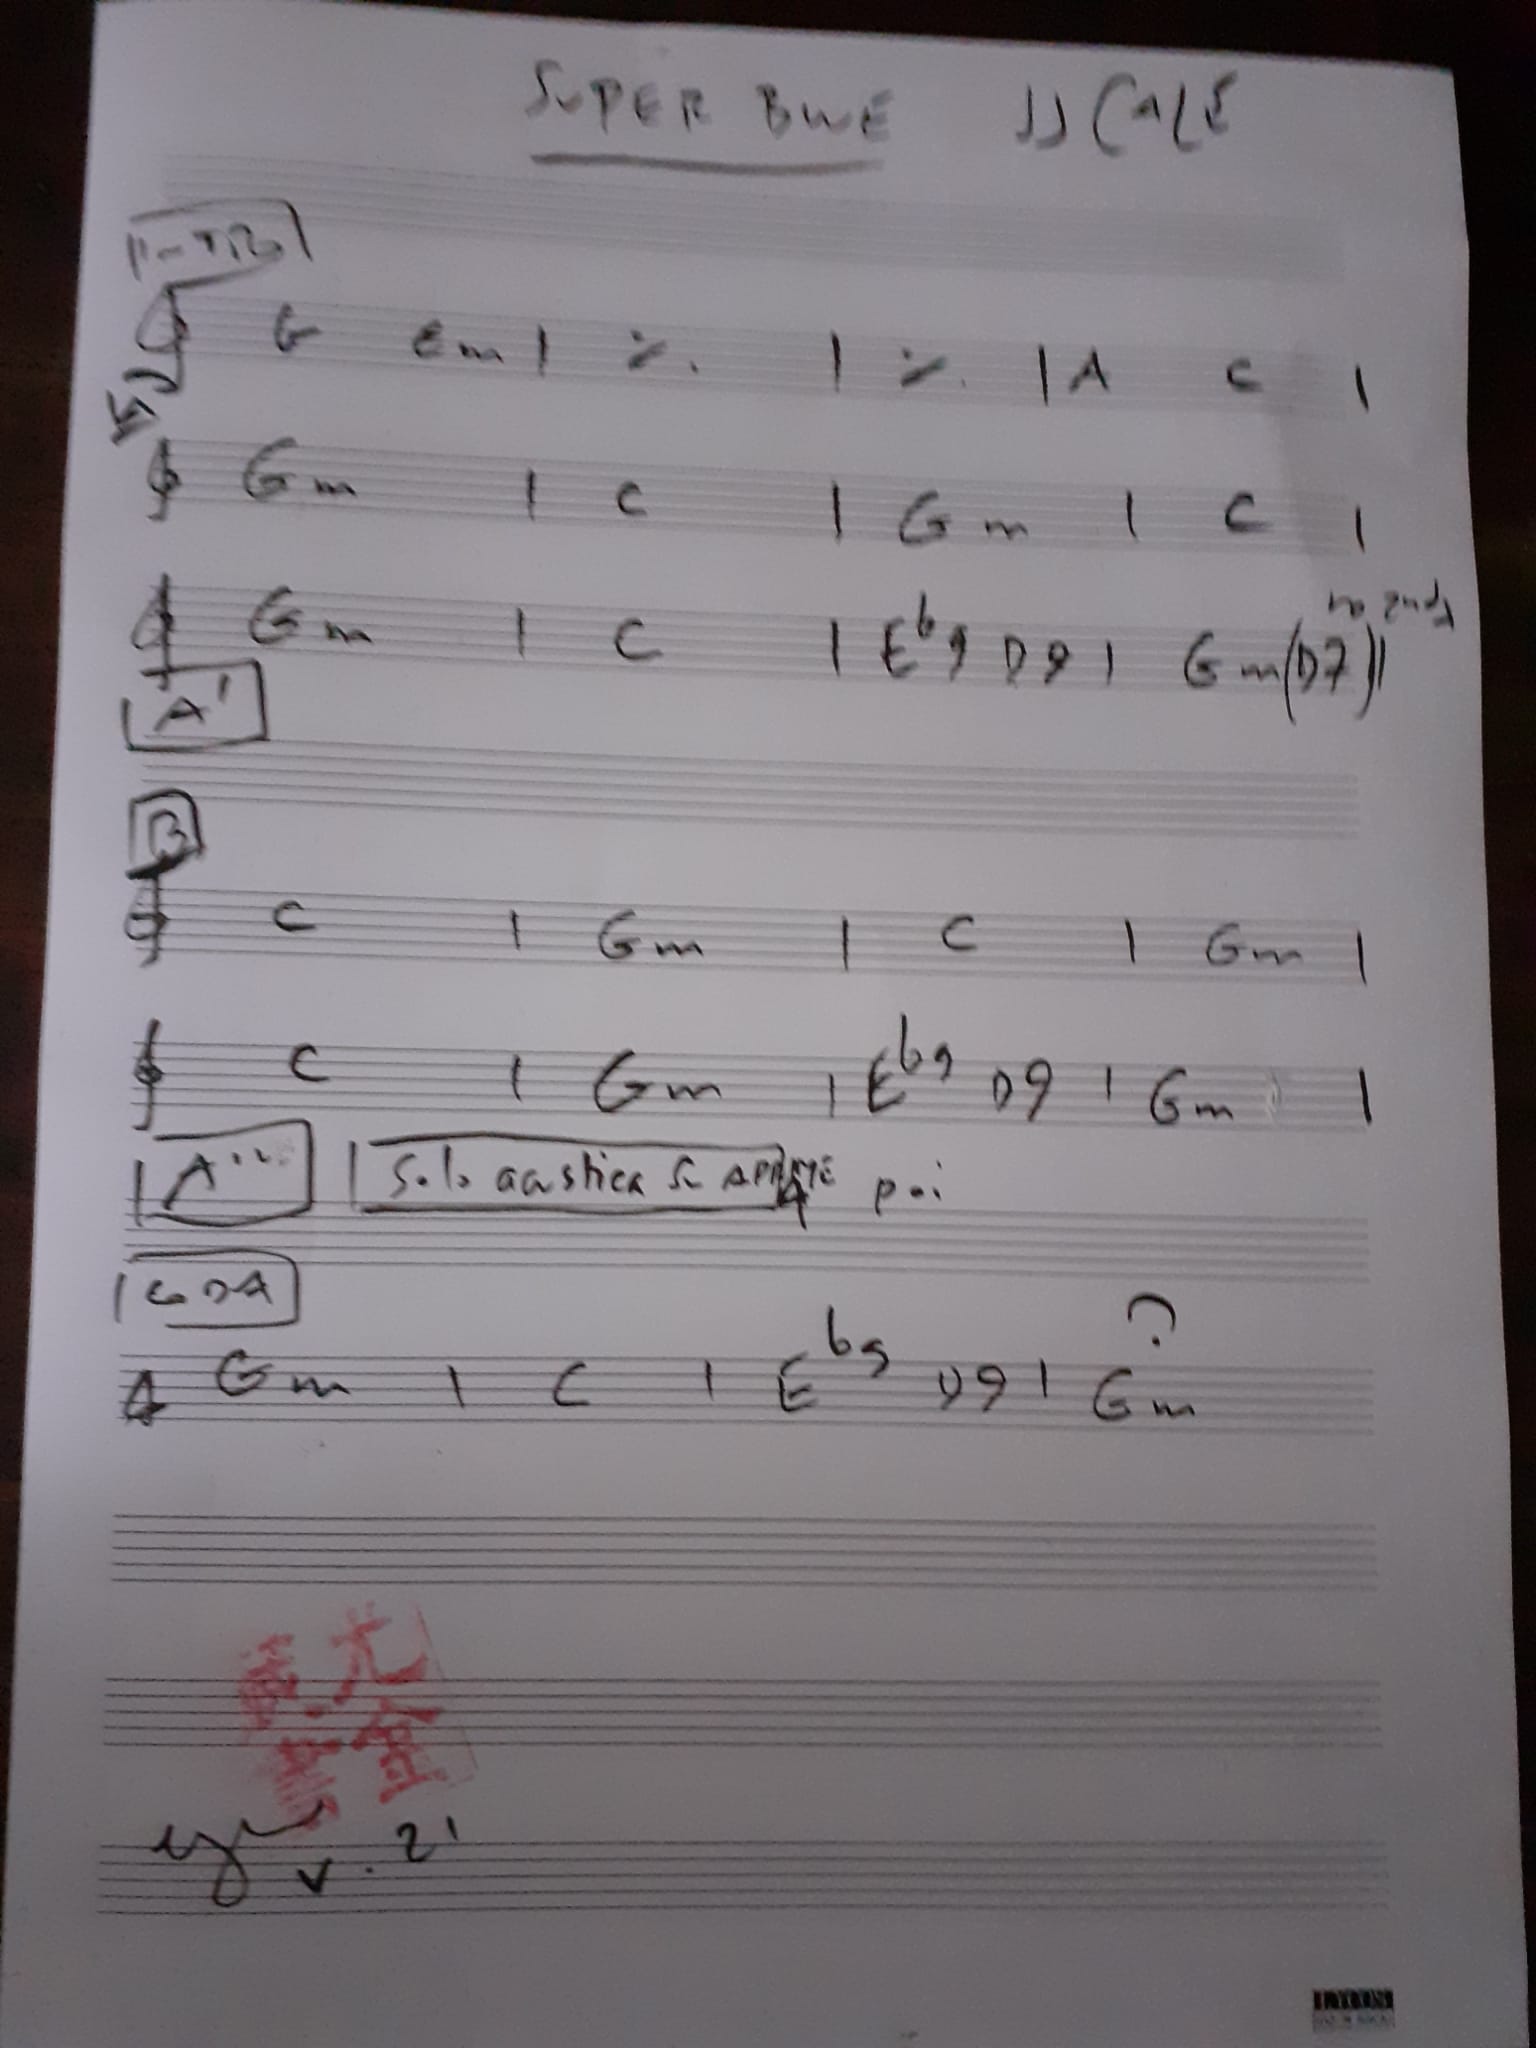 SUPER BLUE JJ CALE
INTRO
G Em | ٪ | ٪ | A C |
Gm | C | Gm | C |
Gm | C | Eb9 D9 | Gm (D7) ||
A'
B
C | Gm | C | Gm |
C | Gm | Eb9 D9 | Gm |
A'' Solo acustica su poi
CODA
Gm | C | Eb9 D9 | Gm
v. 21